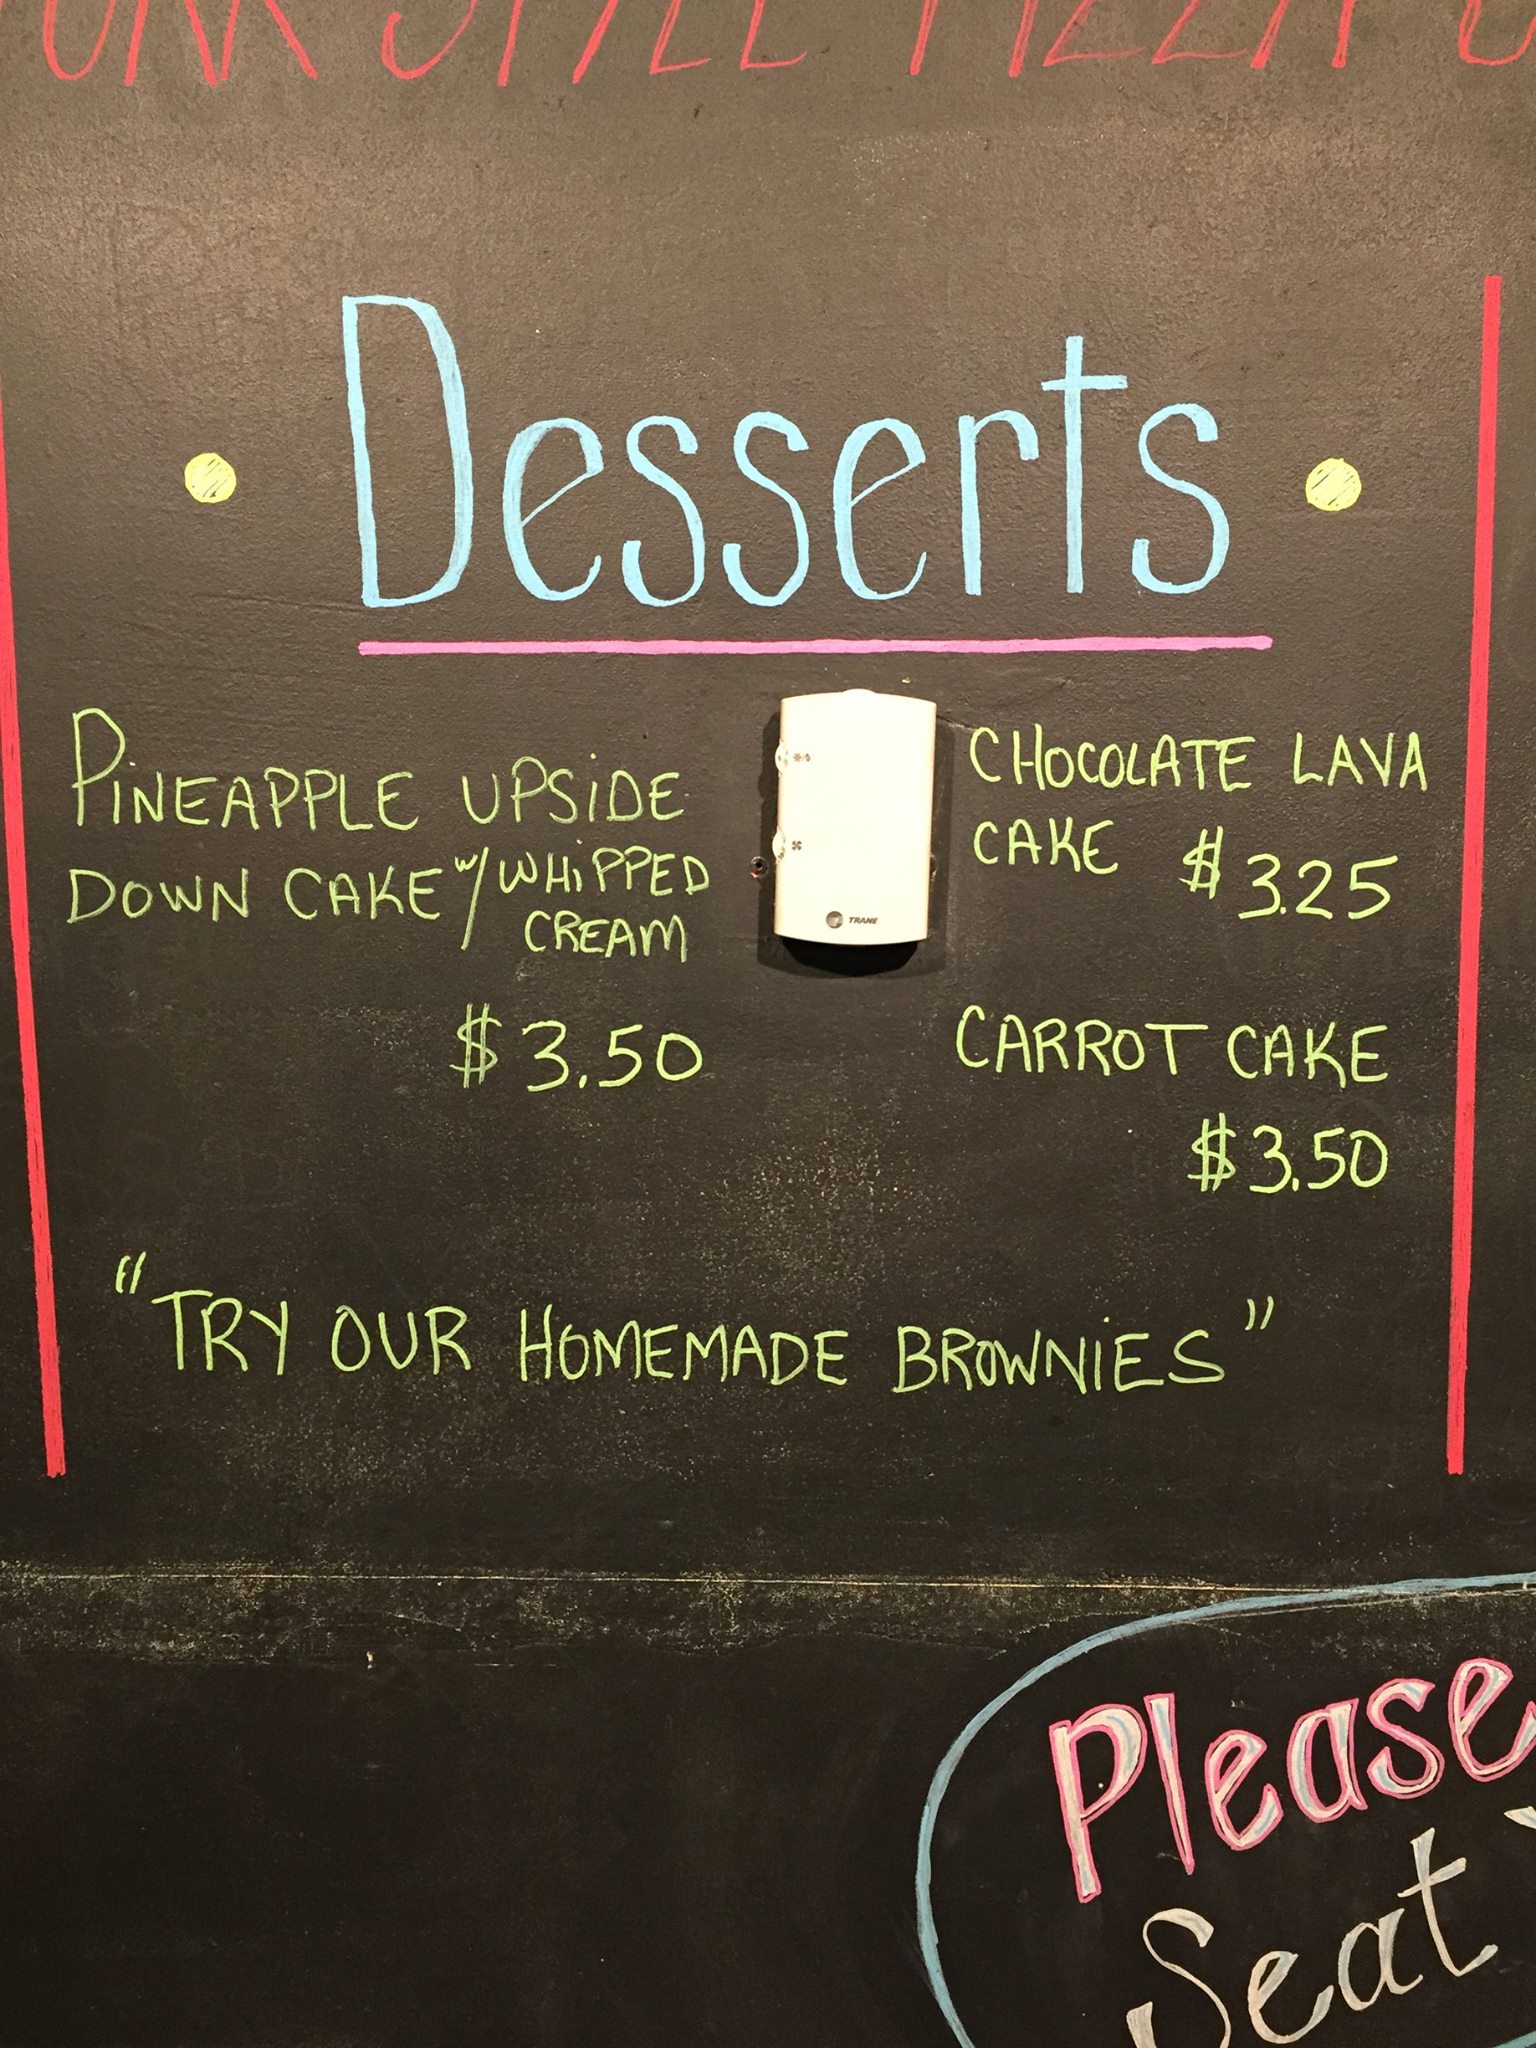 STYLE PIZZA
Desserts
PINEAPPLE UPSIDE
DOWN CAKE w/ WHIPPED
CREAM
$3.50
TRANE
CHOCOLATE LAVA
CAKE $3.25
CARROT CAKE
$3.50
"TRY OUR HOMEMADE BROWNIES"
Please
Seat